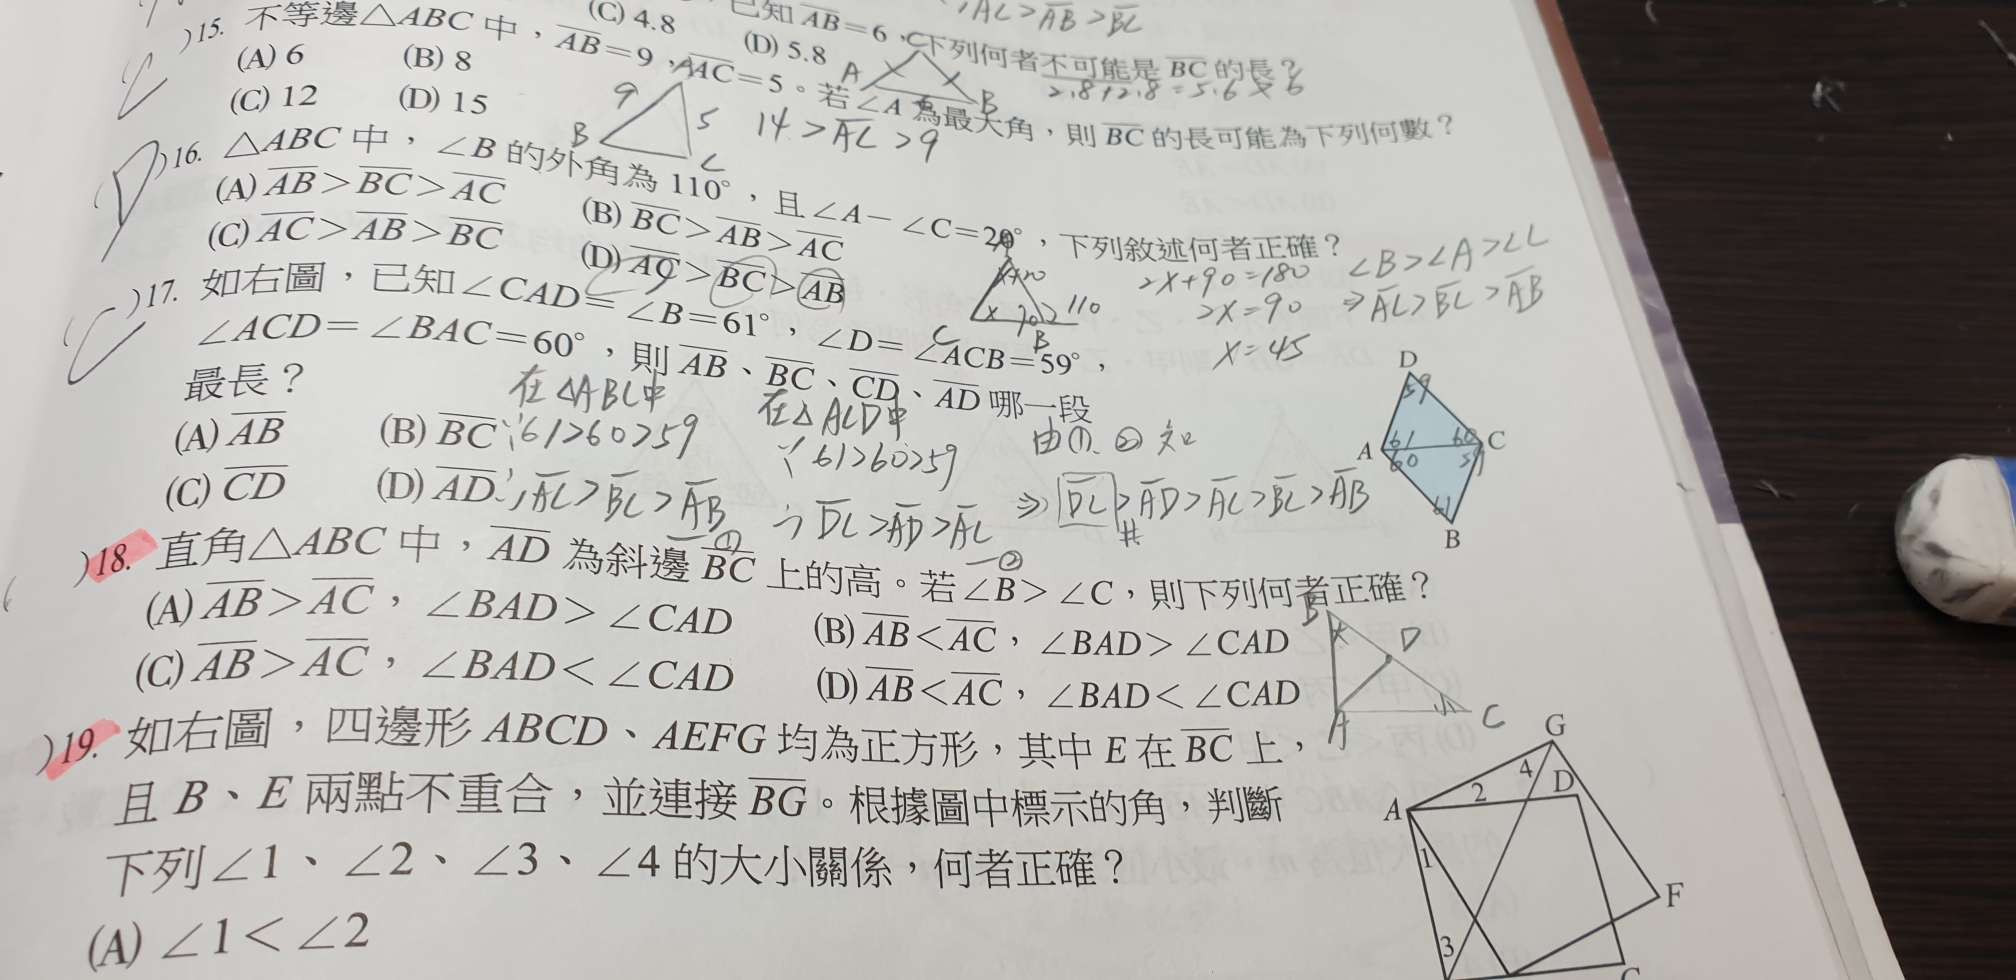 (C) 4.8
已知 AB=6，下列何者不可能是 BC 的長？
∴AC>AB>BC
(D) 5.8
2.8+2.8=5.6<6
C
A
B
)15. 不等邊△ABC 中，AB=9，AC=5。若∠A 為最大角，則 BC 的長可能為下列何數？
(A) 6 (B) 8
(C) 12 (D) 15
A
9
5
B
C
14>AC>9
)16. △ABC 中，∠B 的外角為 110°，且∠A－∠C=20°，下列敘述何者正確？
(A) AB>BC>AC (B) BC>AB>AC
(C) AC>AB>BC (D) AC>BC>AB
A
x+20
x
70
110
C
B
2x+90=180
2x=90
x=45
∠B>∠A>∠C
⇒AC>BC>AB
)17. 如右圖，已知∠CAD=∠B=61°，∠D=∠ACB=59°，
∠ACD=∠BAC=60°，則 AB、BC、CD、AD 哪一段
最長？
(A) AB (B) BC
(C) CD (D) AD
在△ABC中
∵61>60>59
∴AC>BC>AB
—①
在△ACD中
∵61>60>59
∴DC>AD>AC
—②
由①、②知
⇒DC>AD>AC>BC>AB
#
D
59
61
60
A
C
60
59
61
B
)18. 直角△ABC 中，AD 為斜邊 BC 上的高。若∠B>∠C，則下列何者正確？
(A) AB>AC，∠BAD>∠CAD (B) AB<AC，∠BAD>∠CAD
(C) AB>AC，∠BAD<∠CAD (D) AB<AC，∠BAD<∠CAD
B
D
A
C
)19. 如右圖，四邊形 ABCD、AEFG 均為正方形，其中 E 在 BC 上，
且 B、E 兩點不重合，並連接 BG。根據圖中標示的角，判斷
下列∠1、∠2、∠3、∠4 的大小關係，何者正確？
(A) ∠1<∠2
G
4
D
2
A
1
F
3
C